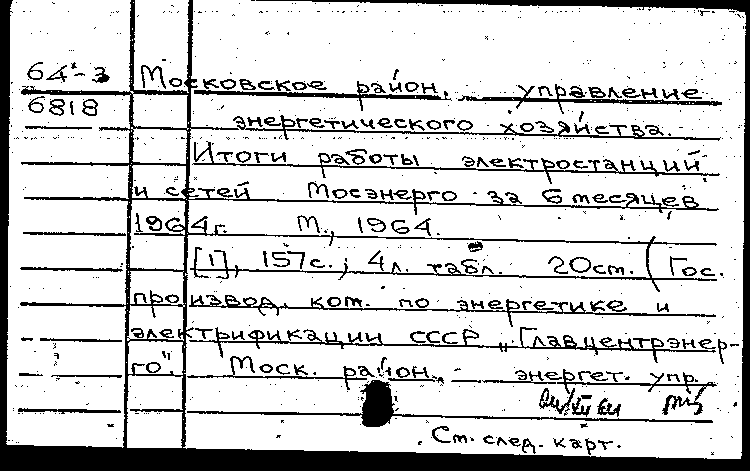 64-3 Московское район. управление
6818 энергетического хозяйства.
Итоги работы электростанций
и сетей Мосэнерго за 6 месяцев
1964г. М., 1964.
[1], 157с.; 4л. табл. 20см. (Гос.
производ. ком. по энергетике и
электрификации СССР „Главцентрэнер-
го". Моск. район. энергет. упр.
См. след. карт.